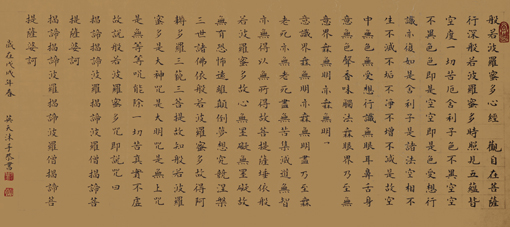 般若波羅蜜多心經 觀自在菩薩
行深般若波羅蜜多時照見五蘊皆
空度一切苦厄舍利子色不異空空
不異色色即是空空即是色受想行
識亦復如是舍利子是諸法空相不
生不滅不垢不淨不增不減是故空
中無色無受想行識無眼耳鼻舌身
意無色聲香味觸法無眼界乃至無
意界無無明亦無無明
意識界無無明亦無無明盡乃至無
老死亦無老死盡無苦集滅道無智
亦無得以無所得故菩提薩埵依般
若波羅蜜多故心無罣礙無罣礙故
無有恐怖遠離顛倒夢想究竟涅槃
三世諸佛依般若波羅蜜多故得阿
耨多羅三藐三菩提故知般若波羅
蜜多是大神咒是大明咒是無上咒
是無等等咒能除一切苦真實不虛
故說般若波羅蜜多咒即說咒曰
揭諦揭諦波羅揭諦波羅僧揭諦菩
提薩婆訶
揭諦揭諦波羅揭諦波羅僧揭諦菩
提薩婆訶
歲在戊戌年春